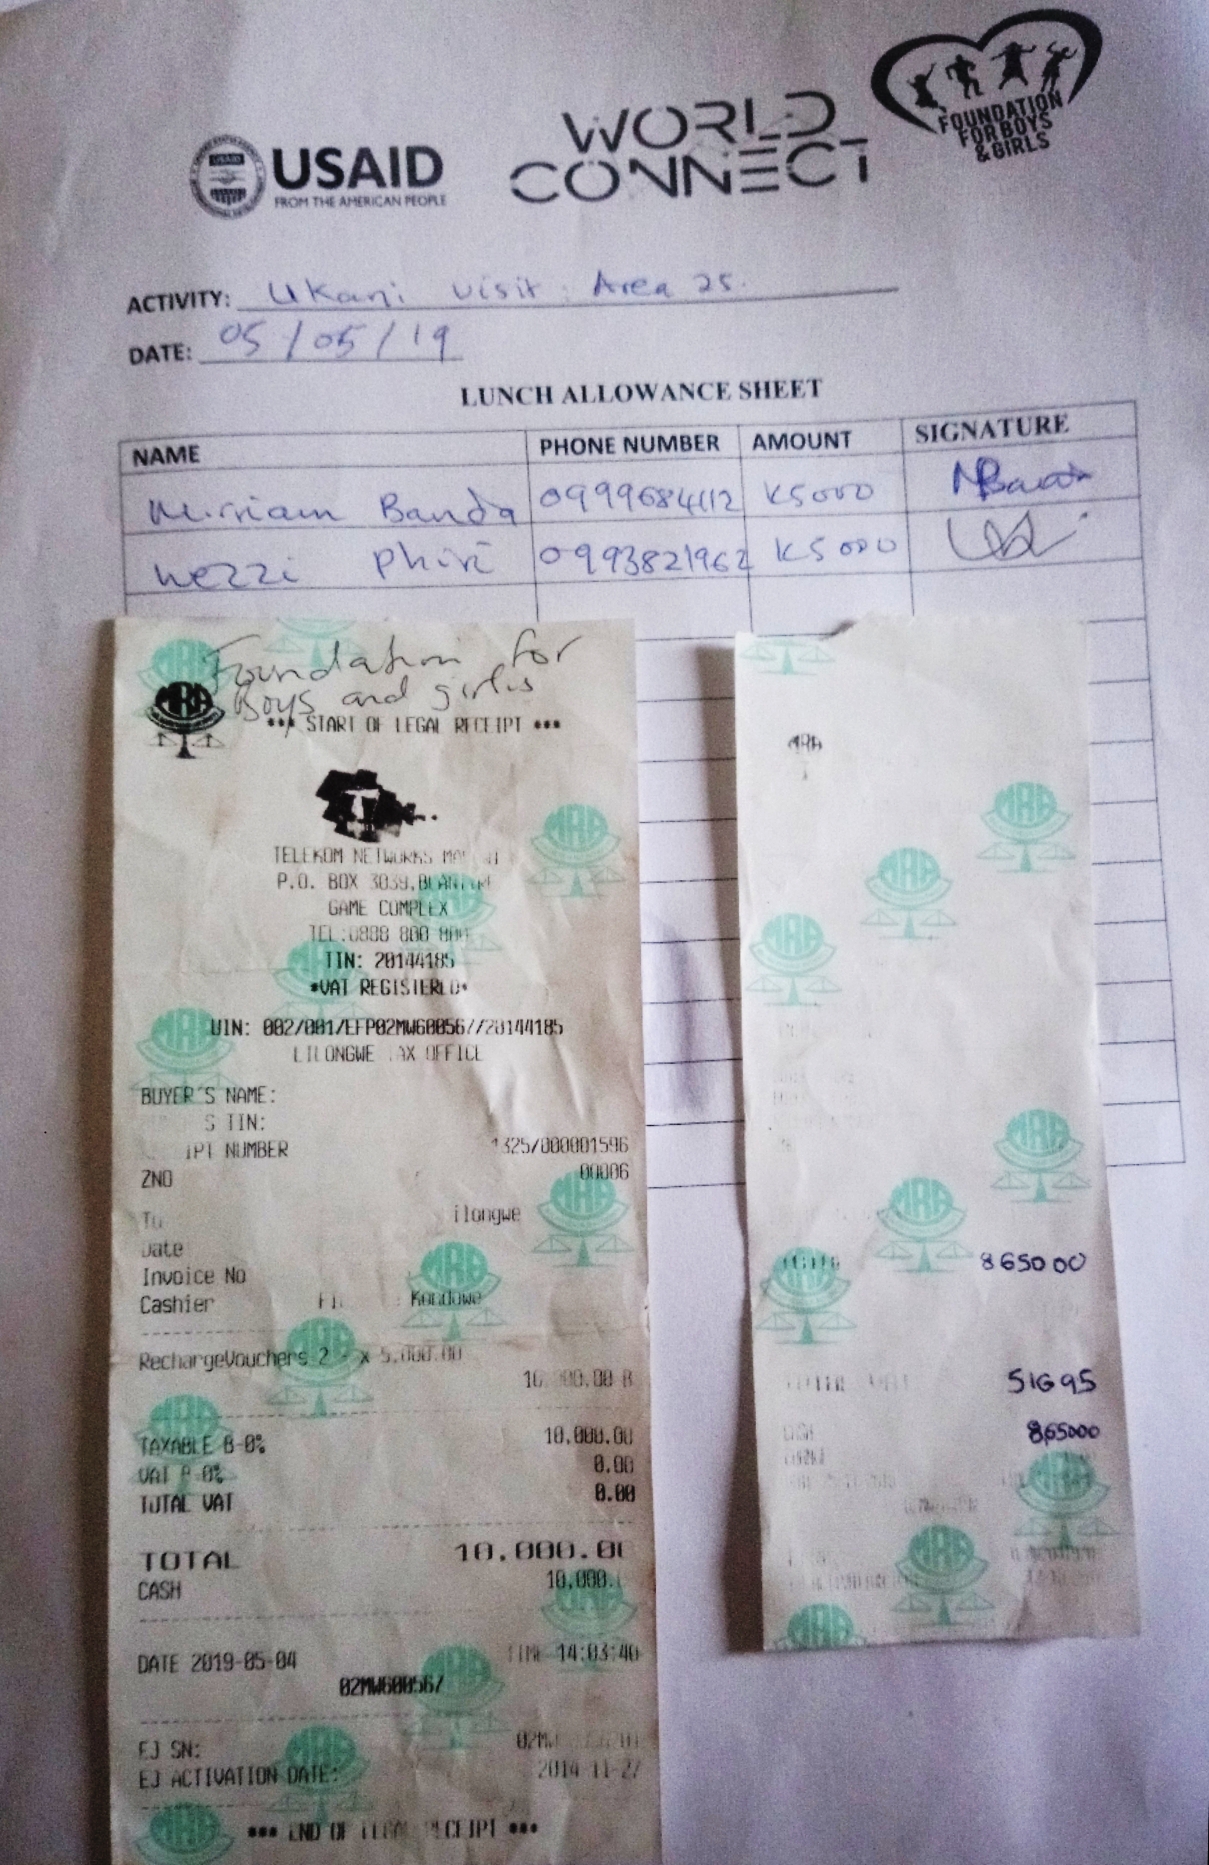 USAID
FROM THE AMERICAN PEOPLE
WORLD
CONNECT
FOUNDATION
FOR BOYS
& GIRLS
ACTIVITY: Ukani visit: Area 25.
DATE: 05/05/19
LUNCH ALLOWANCE SHEET
NAME PHONE NUMBER AMOUNT SIGNATURE
Mirriam Banda 0999684112 K5000
Wezzi Phiri 0993821962 K5000
Foundation for
Boys and girls
MRA
*** START OF LEGAL RECEIPT ***
TELEKOM NETWORKS
P.O. BOX 3039, BLANTYRE
GAME COMPLEX
TEL:0888 800 800
TIN: 20144185
*VAT REGISTERED*
UIN: 002/001/EFP02MW600567/20144185
LILONGWE TAX OFFICE
BUYER'S NAME:
S TIN:
IPT NUMBER 1325/000001596
ZNO 00006
To ilongwe
Date
Invoice No
Cashier Kondowe
RechargeVouchers 2 x 5,000.00
B
TAXABLE B-0% 10,000.00
VAT B-0% 0.00
TOTAL VAT 0.00
TOTAL 10,000.00
CASH 10,000.
DATE 2019-05-04 TIME 14:03:40
02MW600567
EJ SN:
EJ ACTIVATION DATE: 2014-11-27
*** END OF LEGAL RECEIPT ***
MRA
TOTAL 8650 00
TOTAL VAT 516 95
CASH 865000